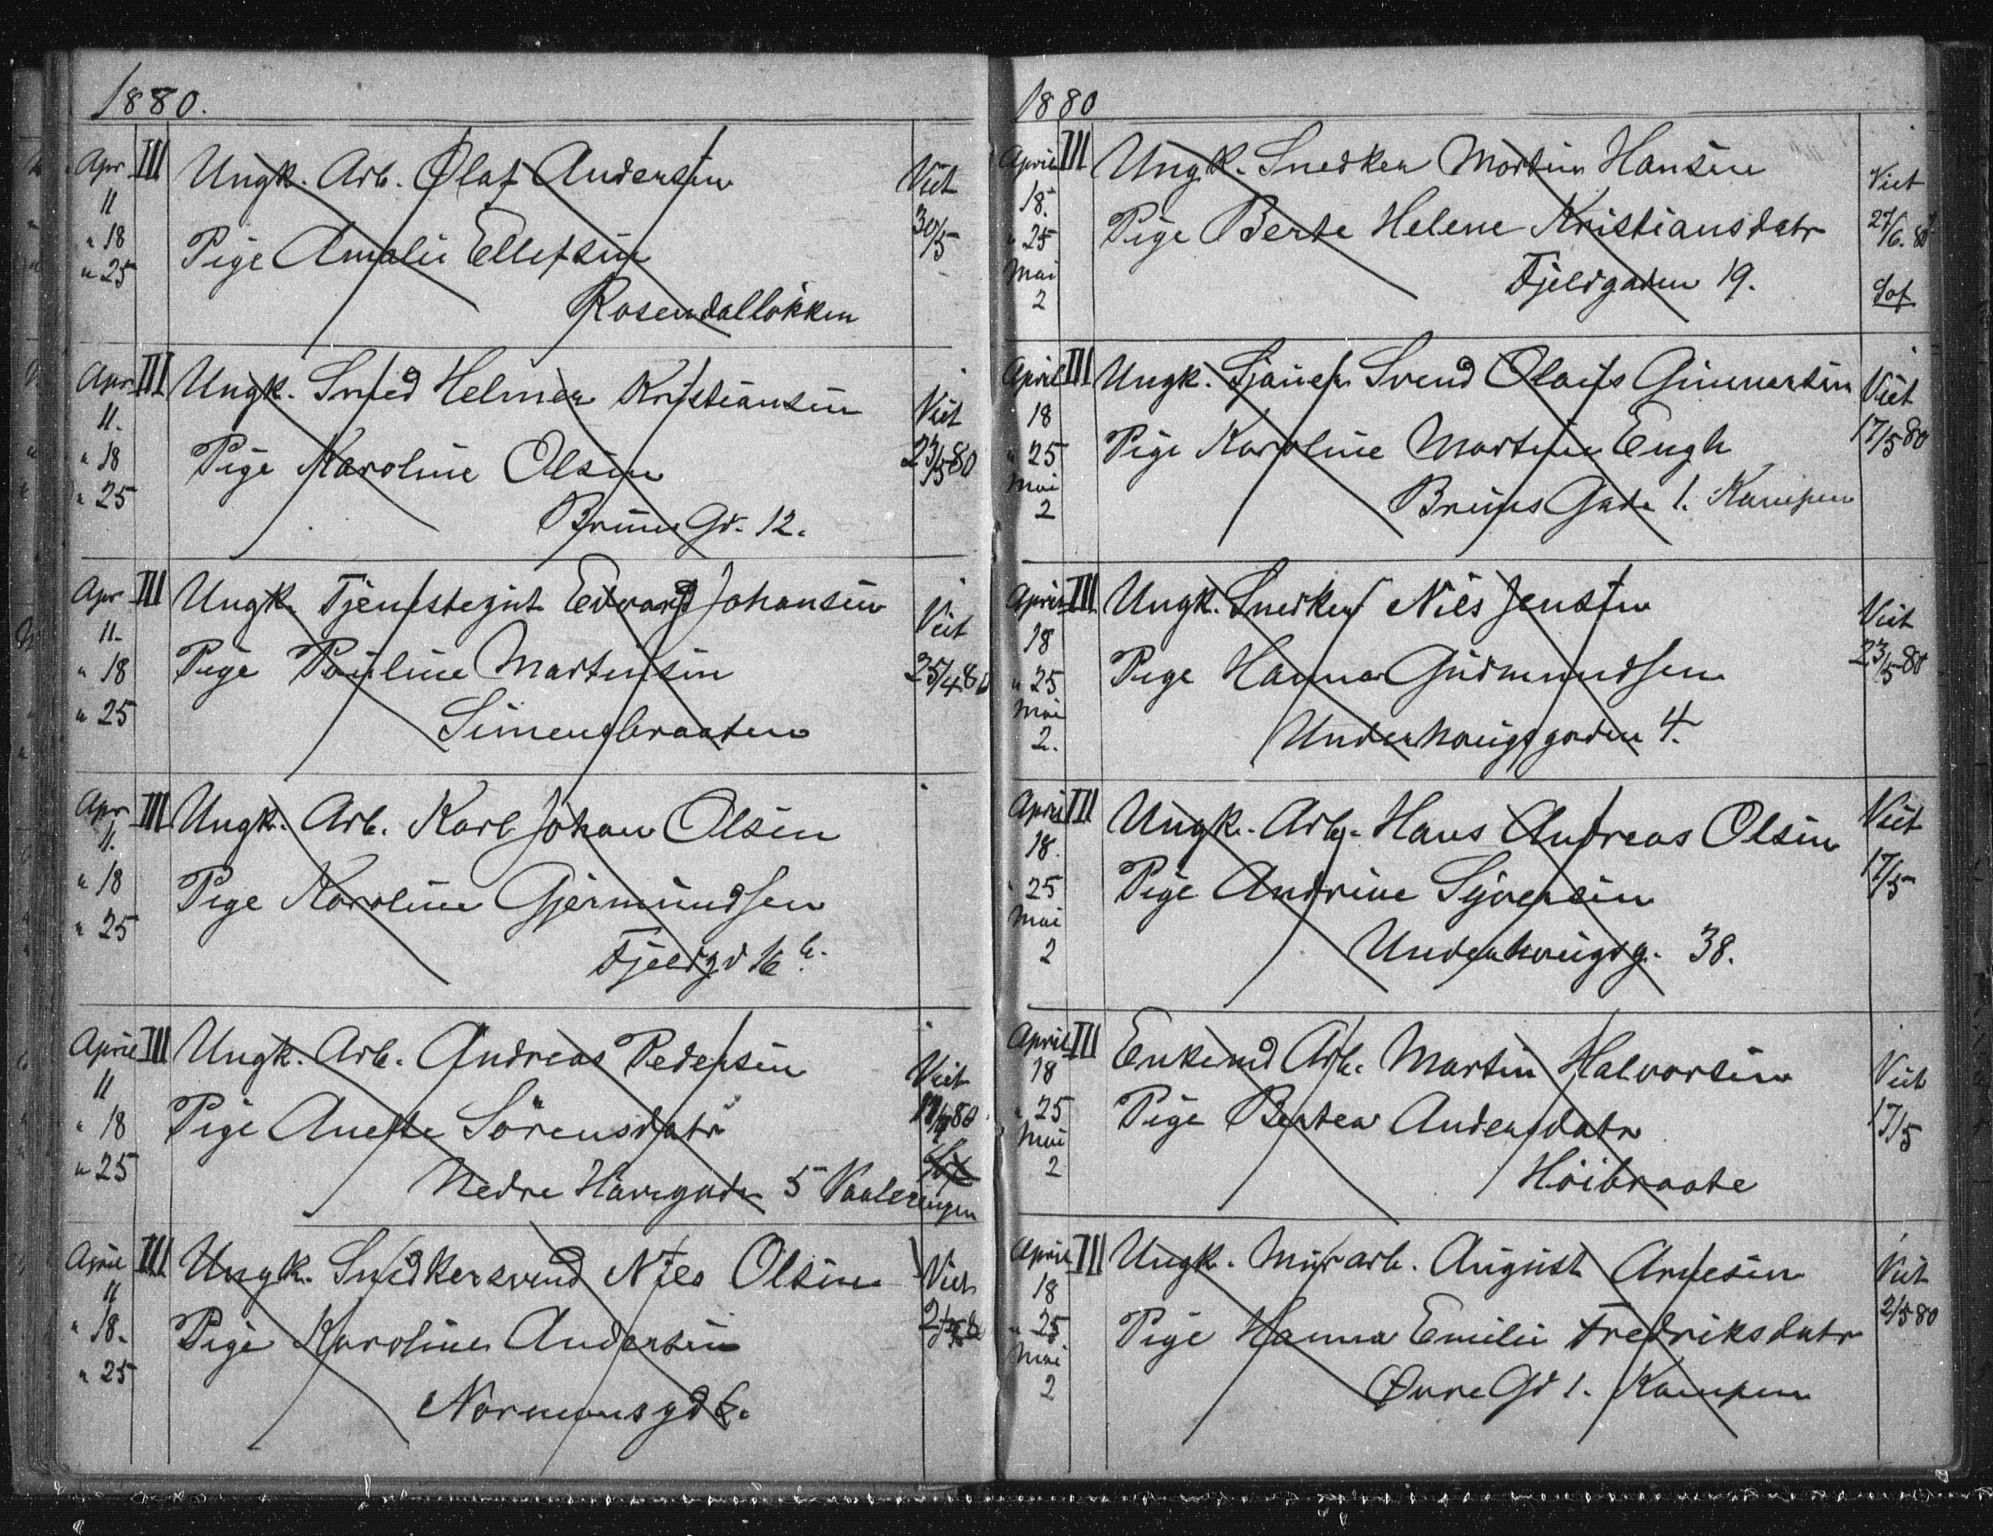 1880.
Apr III Ungk. Arb. Olaf Andersen Viet
11
" 18 Pige Amalie Ellefsen 30/5
" 25
Rosendalløkken
Apr. III Ungk. Smed Helmer Kristiansen Viet
11.
" 18 Pige Karoline Olsen 23/5 80
" 25
Bruns Gd. 12.
Apr III Ungk. Tjenestegut Edvard Johansen Viet
11.
" 18 Pige Pauline Martinsen 25/4 80
" 25
Simensbraaten
Apr III Ungk. Arb. Karl Johan Olsen
11.
" 18 Pige Karoline Gjermundsen
" 25
Fjeldgd 16 b.
April III Ungk. Arb. Andreas Pedersen Viet
11
" 18 Pige Anette Sörensdatr
" 25
Nedre Havegade 5 Vaalerengen
April III Ungk. Snedkersvend Nils Olsen Viet
11
" 18. Pige Karoline Andersen
" 25
Normansgd 6.
1880
April III Ungk. Snedker Martin Hansen Viet
18.
" 25 Pige Berte Helene Kristiansdatr 27/6. 80
Mai
2 Fjeldgaden 19.
April III Ungk. Sjauer Svend Olaus Gunnersen Viet
18
" 25 Pige Karoline Martine Engh 17/5 80
Mai
2 Bruns Gade 1. Kampen
April III Ungk. Snedker Niels Jensen Viet
18
" 25 Pige Hanna Gudmundsen 23/5 80
Mai
2. Underhougsgaden 4.
April III Ungk. Arb. Hans Andreas Olsen Viet
18.
" 25 Pige Andrine Syversen 17/5
Mai
2 Underhougsg. 38.
April III Enkemd Arb. Martin Halvorsen Viet
18
" 25 Pige Bertea Andersdatr 17/5
Mai
2 Höibraate
April III Ungk. Murarb. August Arnesen Viet
18
" 25 Pige Hanna Emilie Fredriksdatr 2/5 80
Mai
2 Øvre Gd 1. Kampen